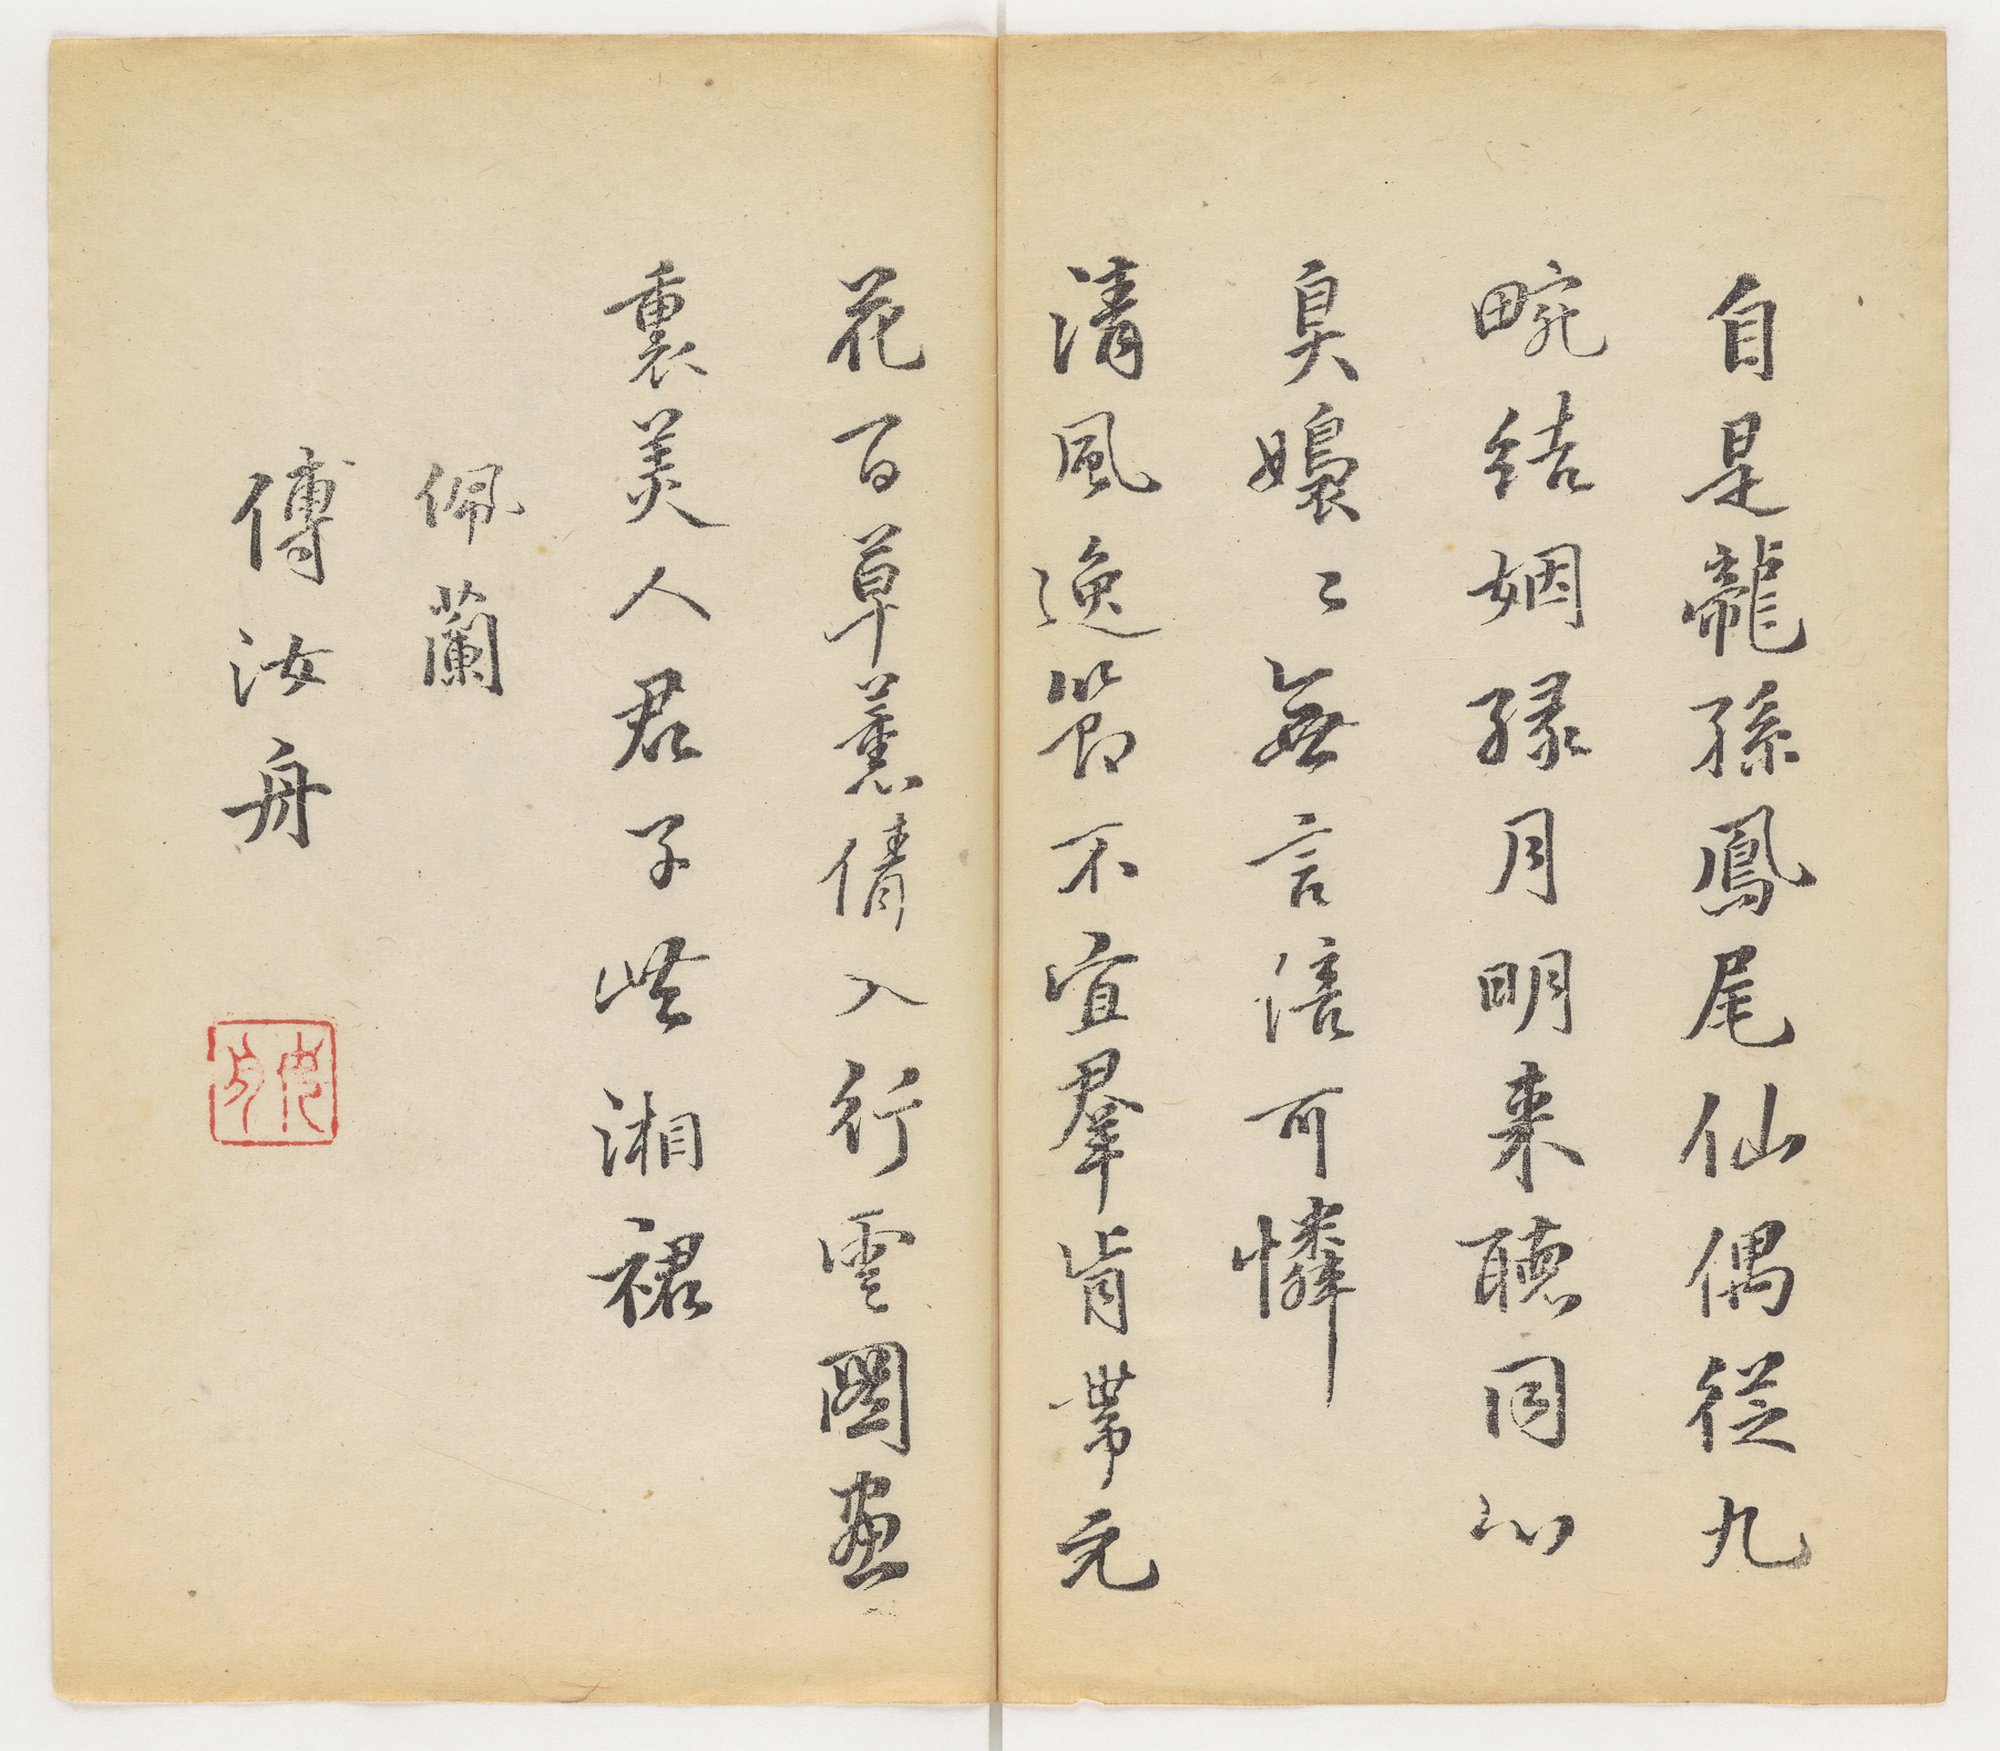 自是龍孫鳳尾仙偶從九
畹結姻緣月明来聽同心
臭嫋〻無言倍可憐
清風逸節不宜羣肯帶元
花百草薰倩入行雲圖畫
裏美人君子湘裙
佩蘭
傅汝舟